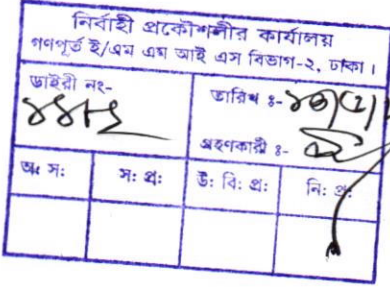 নির্বাহী প্রকৌশলীর কার্যালয়
গণপূর্ত ই/এম এম আই এস বিভাগ-২, ঢাকা।
ডাইরী নং-
তারিখ ঃ-
গ্রহণকারী ঃ-
স: প্র: উ: বি: প্র: নি: প্র: